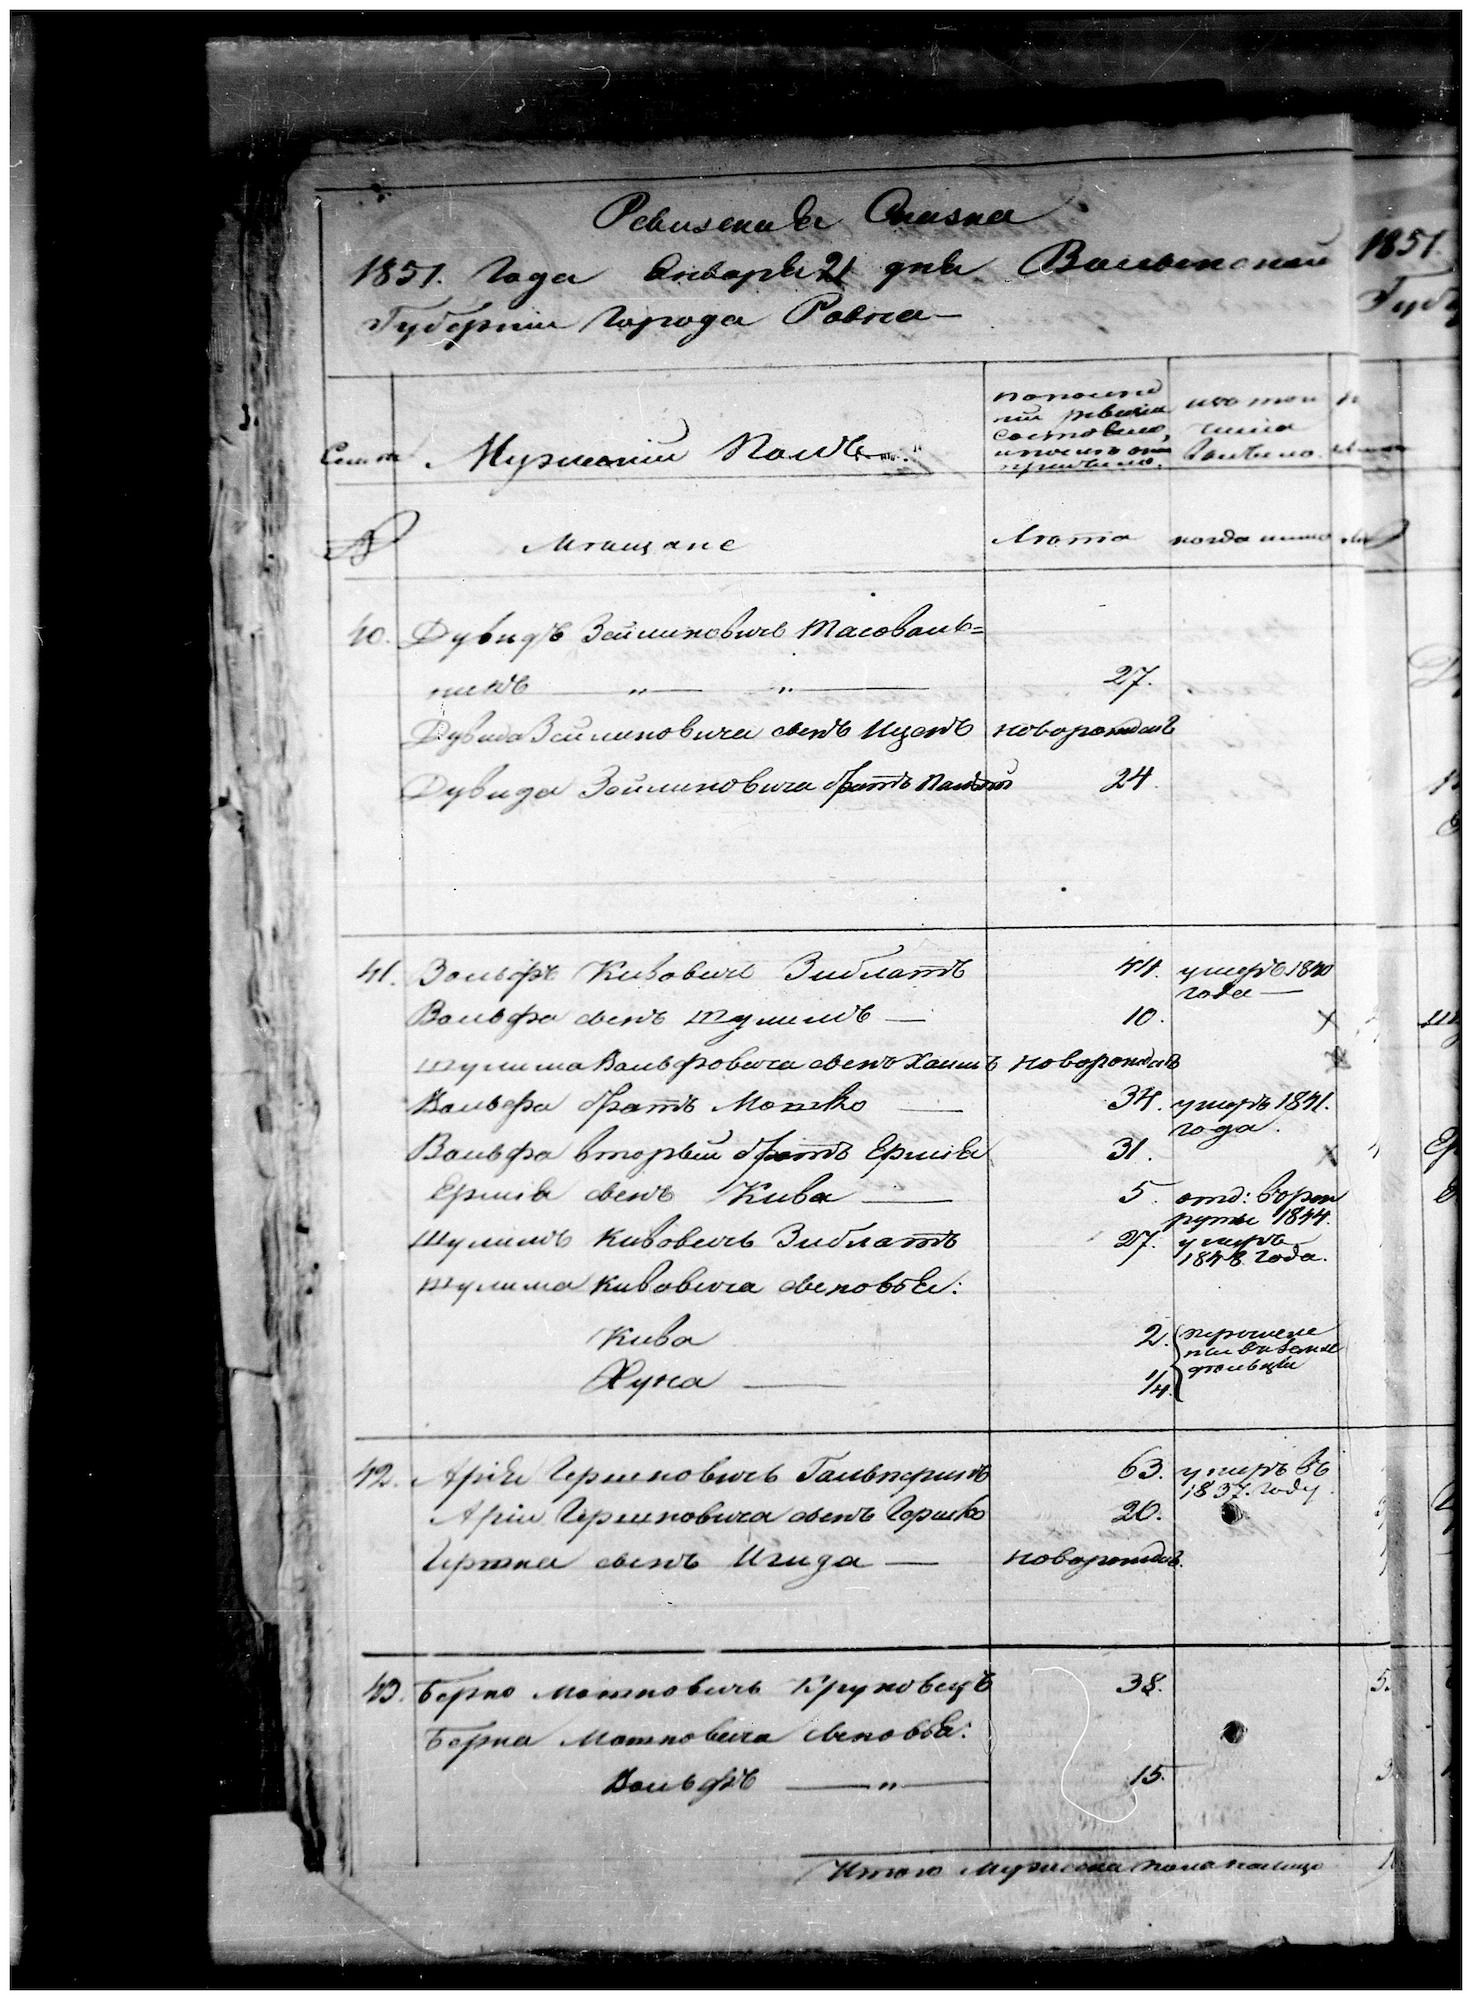 Ревизская Сказка
1851. Года Января 21 дня Волынской
Губернии города Ровна
Семьи Мужескій Полъ
по последней ревизіи состояло, и после оной прибыло.
изъ того числа выбыло.
№ Мещане Лета когда именно
40. Дувидъ Зейликовичъ Тасоваль=
никъ — „ — „ — 27.
Дувида Зейликовича сынъ Ицекъ новорожденъ
Дувида Зейликовича братъ 24
41. Вольфъ Кивовичъ Зиблатъ 44. умеръ 1840
года —
Вольфа сынъ Шулимъ — 10. ×
Шулима Вольфовича сынъ Хаимъ новорожденъ ×
Вольфа братъ Мошко — 34. умеръ 1841.
года.
Вольфа вторый братъ Ершь 31. ×
Ершя сынъ Кива — 5. отд: въ рек
руты 1844.
Шулимъ Кивовичъ Зиблатъ 27. умеръ
1848 года.
Шулима Кивовича сыновья:
Кива 2.
Хуна — 1/4.
42. Арія Гершковичъ Гальперинъ 63. умеръ въ
1837. году
Арія Гершковича сынъ Гершко 20.
Гершка сынъ Игида — новорожденъ.
43. Берко Мошковичъ Круповецъ 38.
Берка Мошковича сыновья:
Вольфъ — „ — 15.
Итого Мужеска пола налицо
1851.